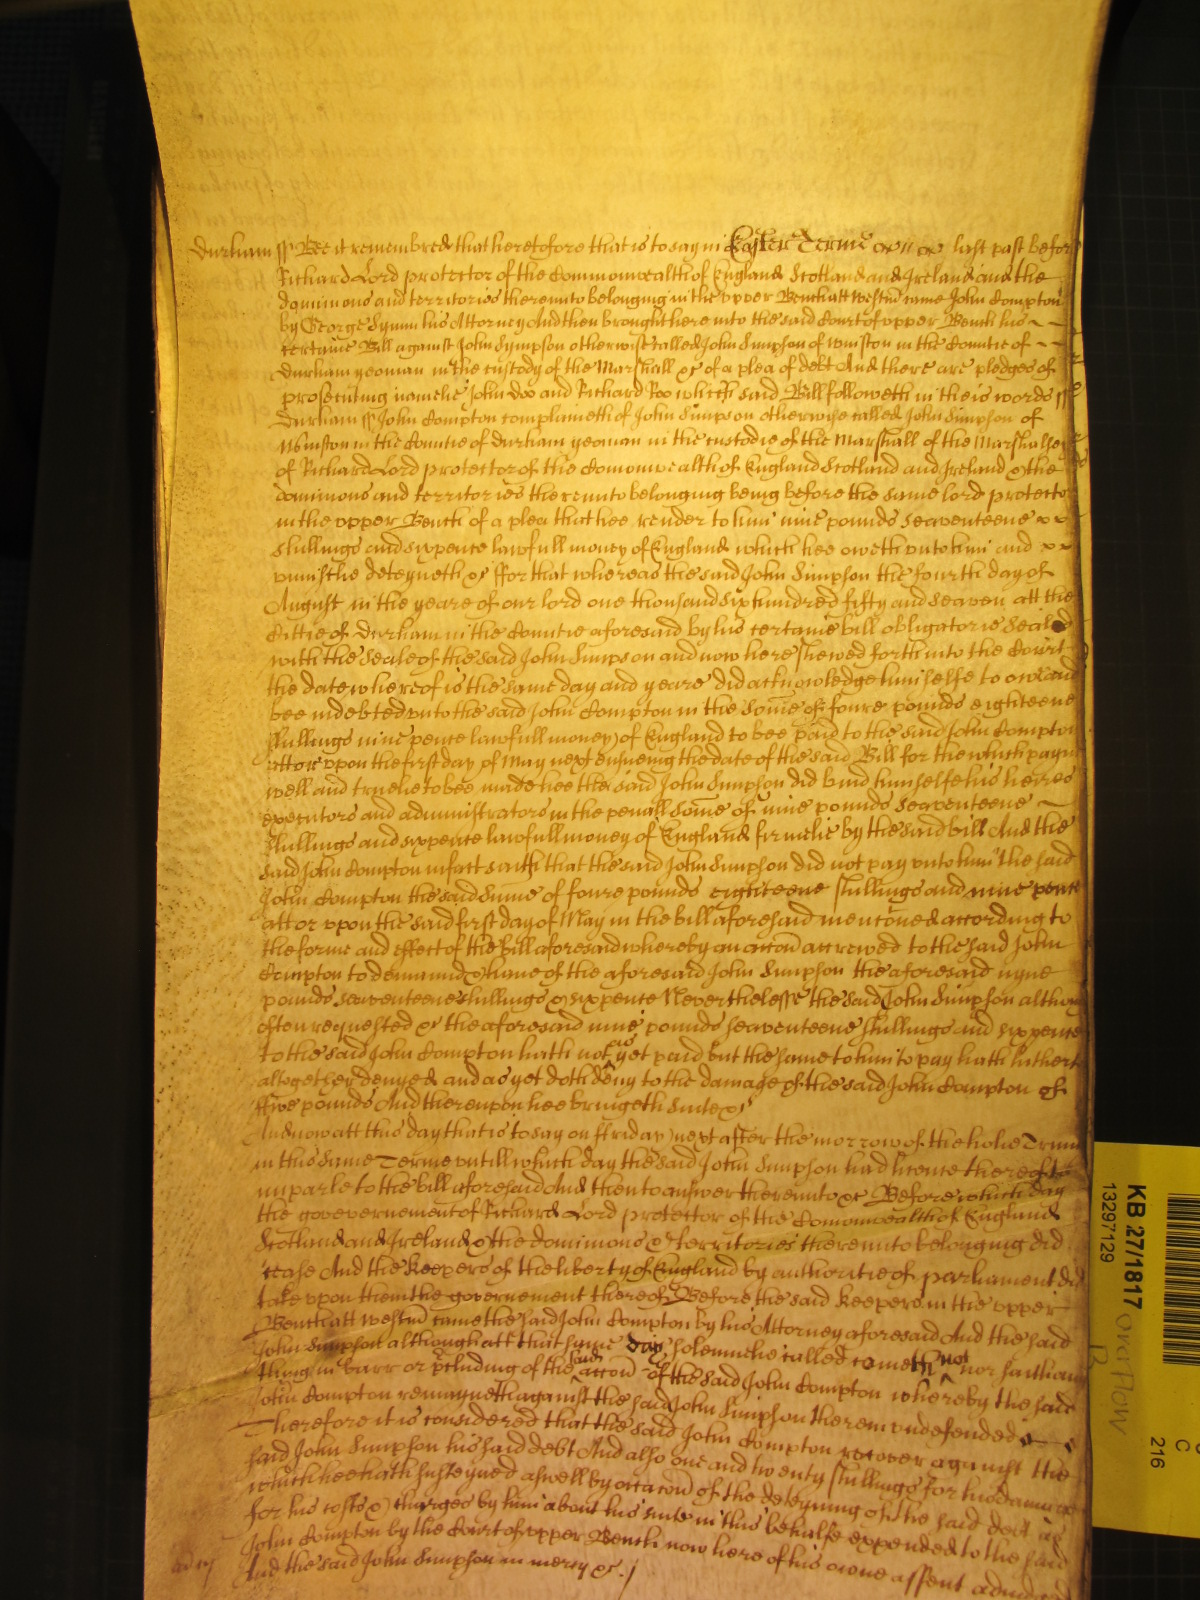 Durham ss Bee it remembred that heretofore that is to say in Easter Terme last past before
Richard Lord protector of the Commonwealth of England Scotland and Ireland and the
dominions and territories thereunto belonging in the vpper Bench att Westm came John Compton
by George Symm his Attorney And then brought here into the said Court of vpper Bench his
certaine Bill against John Sympson otherwise called John Simpson of Winston in the Countie of
Durham yeoman in the custody of the Marshall &c of a plea of debt And there are pledges of
prosecuting namelie John Doo and Richard Roo which said Bill followeth in theis words ss
Durham ss John Compton complaineth of John Simpson otherwise called John Simpson of
Winston in the Countie of Durham yeoman in the custodie of the Marshall of the Marshalsey
of Richard Lord protector of the Comonwealth of England Scotland and Ireland & the
dominions and territories thereunto belonging being before the same lord protector
in the vpper Bench of a plea that hee render to him nine pounds seaventeene
shillings and sixpence lawfull money of England which hee oweth vnto him and
vniustlie deteyneth &c ffor that whereas the said John Simpson the fourth day of
August in the yeare of our lord one thousand six hundred fifty and seaven att the
Cittie of Durham in the Countie aforesaid by his certaine bill obligatorie sealed
with the seale of the said John Simpson and now here shewed forth into the Court
the date whereof is the same day and yeare did acknowledge himselfe to owe and
bee indebted vnto the said John Compton in the some of foure pounds eighteene
shillings nine pence lawfull money of England to bee paid to the said John Compton
att or vpon the first day of May next ensueing the date of the said Bill for the which paym
well and truelie to bee made hee the said John Simpson did bind himselfe his heires
executors and administrators in the penall some of nine pounds seaventeene
shillings and sixpence lawfull money of England firmelie by the said bill And the
said John Compton in fact saith that the said John Simpson did not pay vnto him the said
John Compton the said sume of foure pounds eighteene shillings and nine pence
att or vpon the said first day of May in the bill aforesaid menconed according to
the forme and effect of the bill aforesaid whereby an accon accrewed to the said John
Compton to demaund & have of the aforesaid John Simpson the aforesaid nyne
pounds seaventeene shillings & sixpence Neverthelesse the said John Simpson although
often requested &c the aforesaid nine pounds seaventeene shillings and sixpence
to the said John Compton hath not as yet paid but the same to him to pay hath hitherto
altogether denyed and as yet doth deny to the damage of the said John Compton of
ffive pounds And thereupon hee bringeth suite &c
And now att this day that is to say on ffriday next after the morrow of the holie Trini
in this same Terme vntill which day the said John Simpson had licence thereof to
imparle to the bill aforesaid And then to answer thereunto &c Before which day
the governement of Richard Lord protector of the Comonwealth of England
Scotland and Ireland & the dominions & territories thereunto belonging did
cease And the Keepers of the liberty of England by authoritie of parliament did
take vpon them the governement thereof Before the said Keepers in the vpper
Bench att Westm came the said John Compton by his Attorney aforesaid And the said
John Simpson although att that same day solemnelie called cometh not nor saith any
thing in barr or p'cluding of the said accon of the said John Compton whereby the said
John Compton remayneth against the said John Simpson therein vndefended
Therefore it is considered that the said John Compton recover against the
said John Simpson his said debt And also one and twenty shillings for his damages
which hee hath susteyned aswell by occacon of the deteyning of the said debt as
for his costs & charges by him about his suite in this behalfe expended to the said
John Compton by the Court of vpper Bench now here of his owne assent adiudged
And the said John Simpson in mercy &c
KB 27/1817 overflow
13297129
C
216